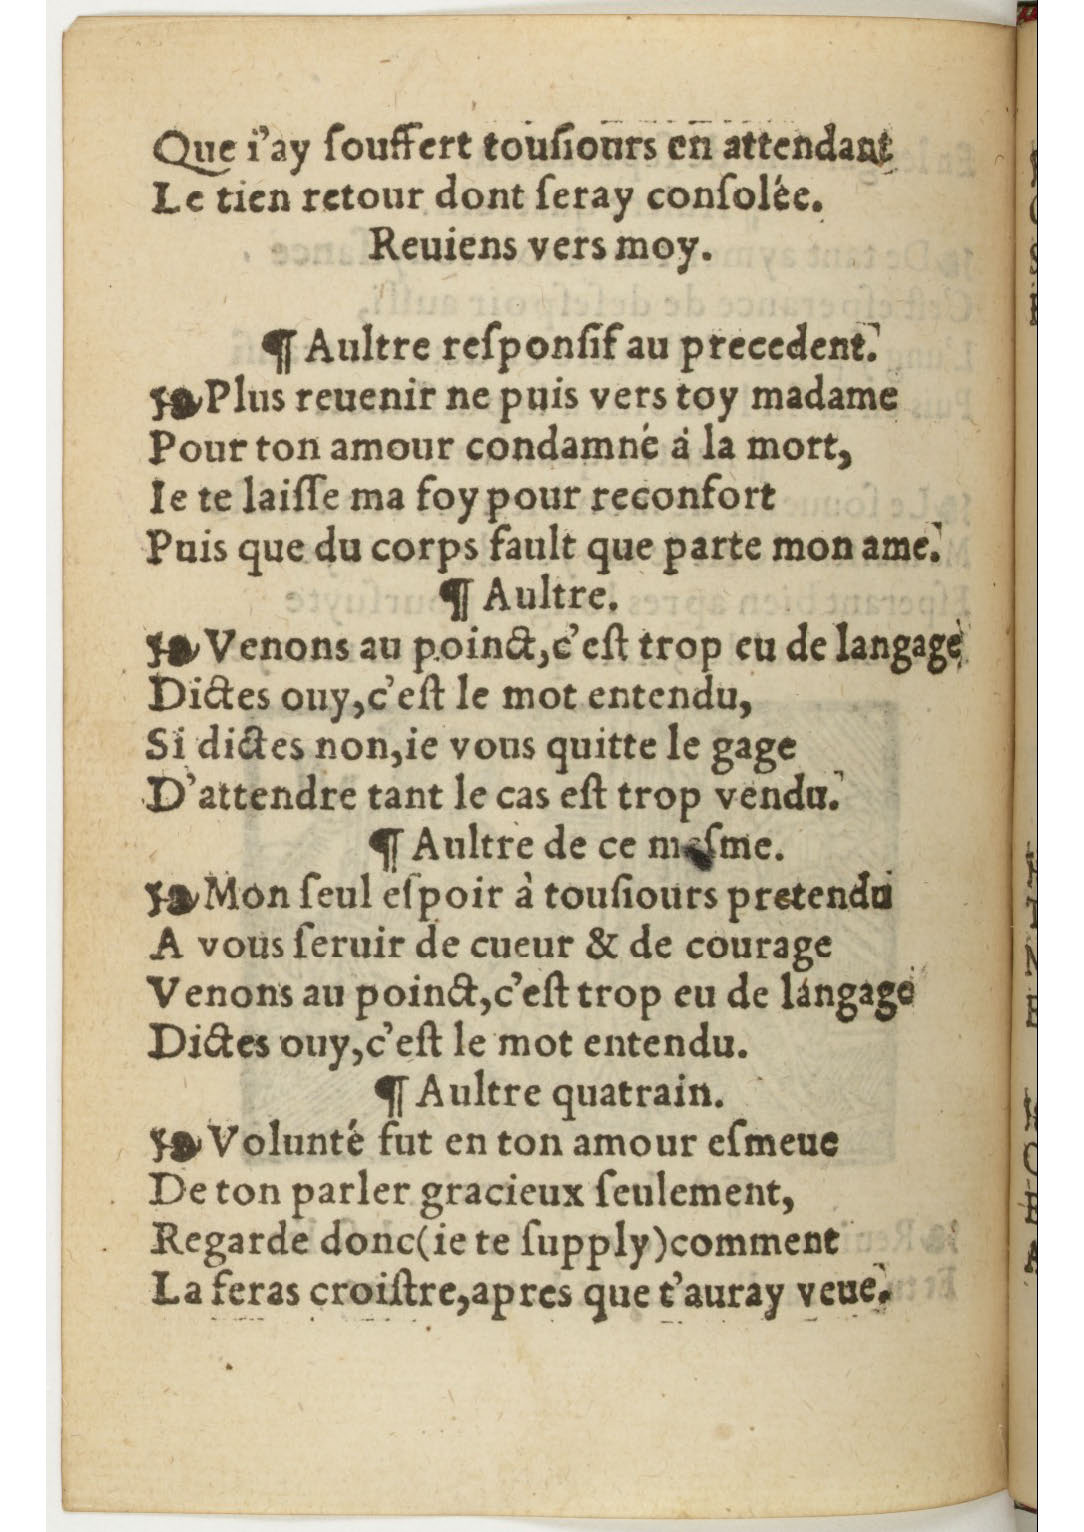 Que i'ay ſouffert touſiours en attendant
Le tien retour dont ſeray conſolée.
Reuiens vers moy.
¶ Aultre reſponſif au precedent.
❧ Plus reuenir ne puis vers toy madame
Pour ton amour condamné á la mort,
Ie te laiſſe ma foy pour reconfort
Puis que du corps fault que parte mon ame.
¶ Aultre.
❧ Venons au poinct, c'eſt trop eu de langage
Dictes ouy, c'eſt le mot entendu,
Si dictes non, ie vous quitte le gage
D'attendre tant le cas eſt trop vendu.
¶ Aultre de ce meſme.
❧ Mon ſeul eſpoir à touſiours pretendu
A vous ſeruir de cueur & de courage
Venons au poinct, c'eſt trop eu de langage
Dictes ouy, c'eſt le mot entendu.
¶ Aultre quatrain.
❧ Volunté fut en ton amour eſmeue
De ton parler gracieux ſeulement,
Regarde donc (ie te ſupply) comment
La feras croiſtre, apres que t'auray veue.